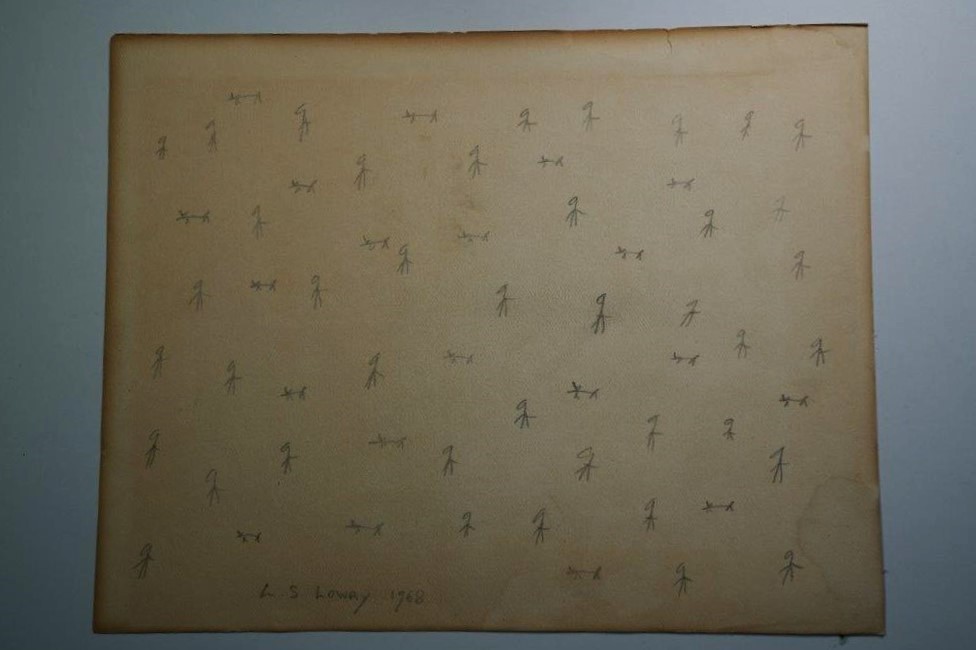 L S Lowry 1968